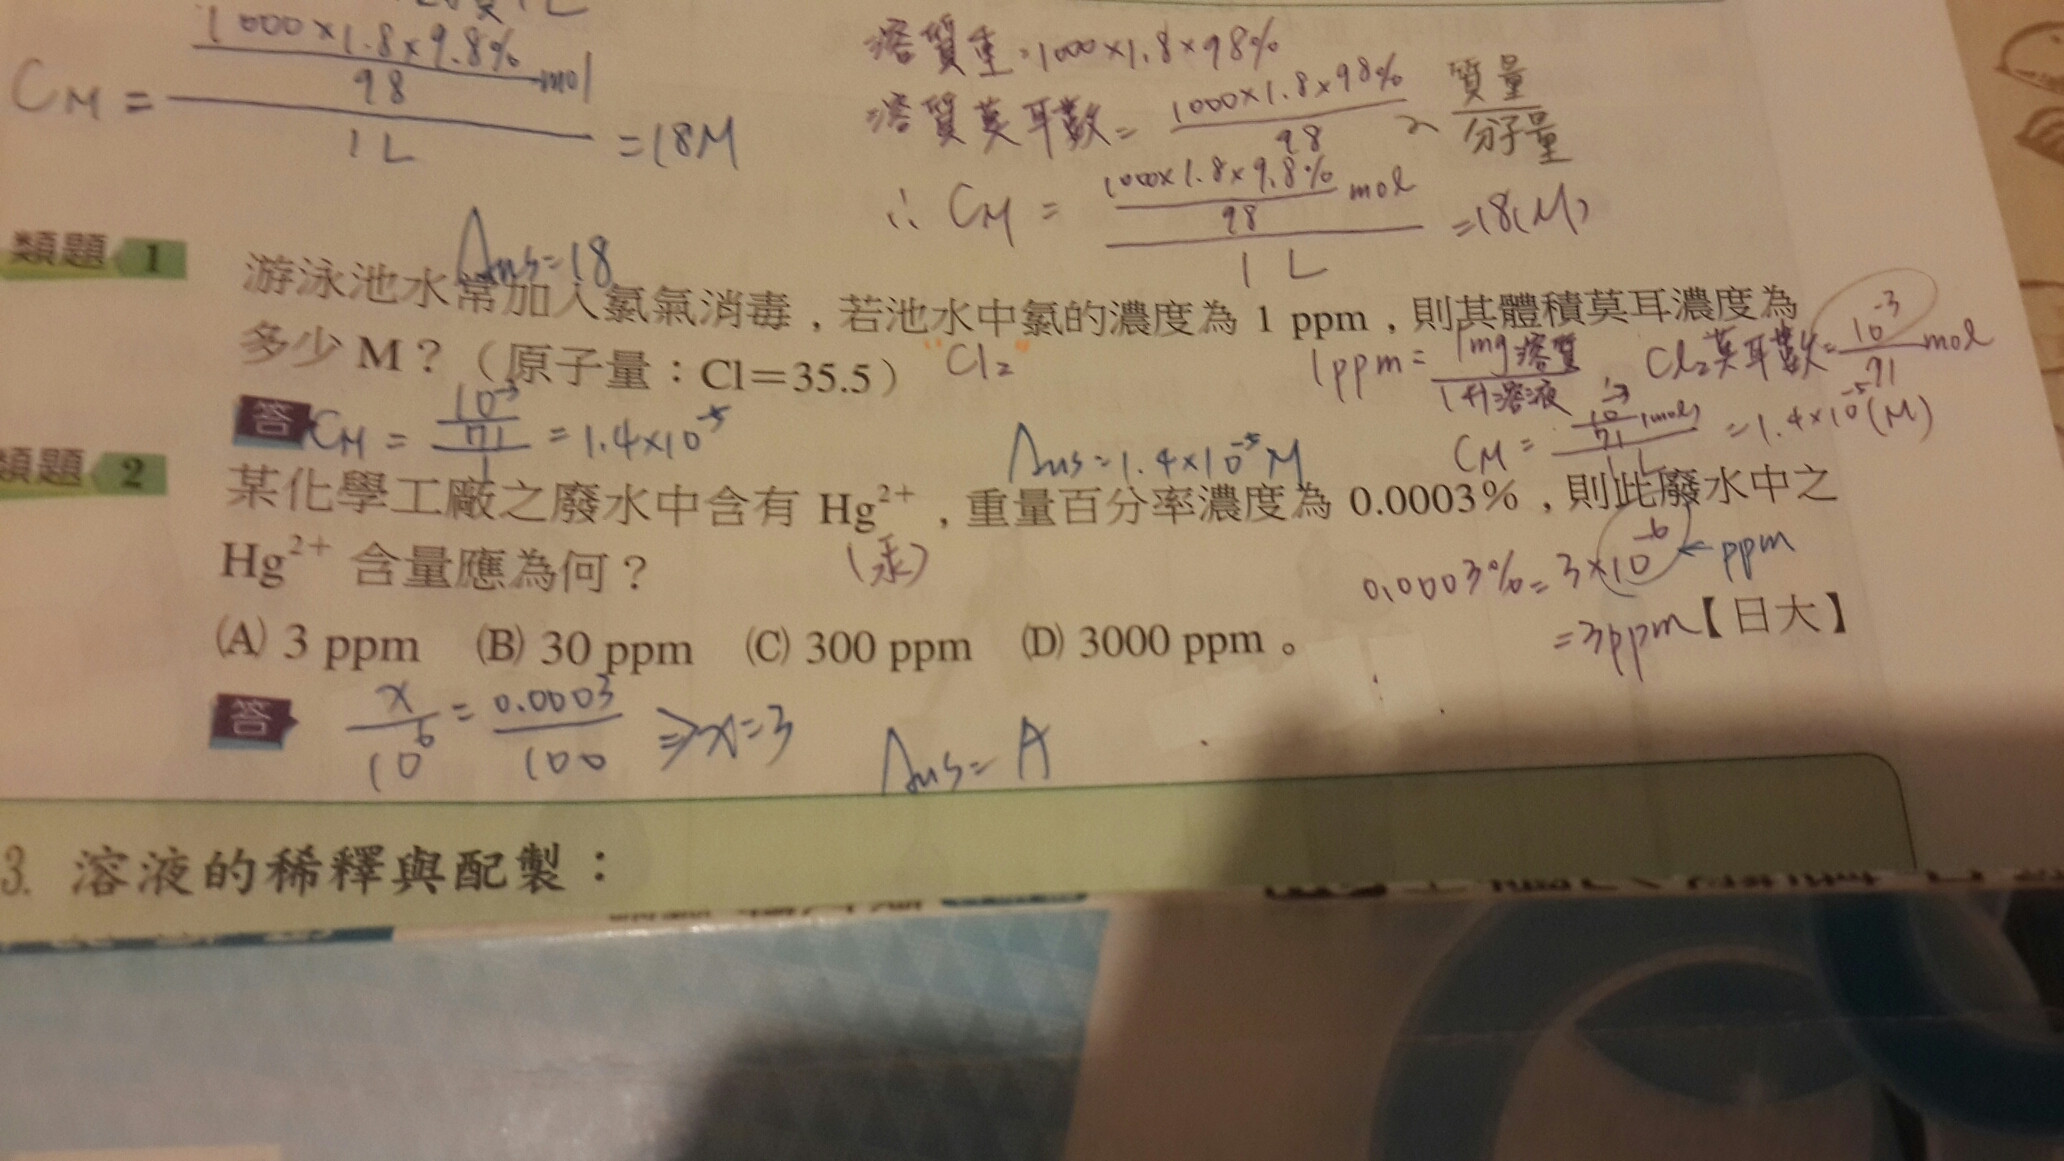 1000×1.8×9.8%
98
mol
CM = 1 L = 18M
溶質重=1000×1.8×98%
溶質莫耳數= 1000×1.8×98% / 98
質量
分子量
∴ CM = 1000×1.8×9.8% / 98 mol / 1 L =18(M)
Ans=18
類題 1
游泳池水常加入氯氣消毒，若池水中氯的濃度為 1 ppm，則其體積莫耳濃度為
多少 M？（原子量：Cl＝35.5）
"Cl₂"
1ppm = 1mg溶質 / 1升溶液
Cl₂莫耳數= 10⁻³ / 71 mol
答 CM = 10⁻³ / 71 / 1 = 1.4×10⁻⁵
Ans=1.4×10⁻⁵M
CM = 10⁻³ / 71 (mol) / 1 L = 1.4×10⁻⁵(M)
類題 2
某化學工廠之廢水中含有 Hg²⁺，重量百分率濃度為 0.0003%，則此廢水中之
Hg²⁺ 含量應為何？
(汞)
0.0003%= 3×10⁻⁶ ← ppm
=3ppm
【日大】
(A) 3 ppm (B) 30 ppm (C) 300 ppm (D) 3000 ppm。
答 x / 10⁶ = 0.0003 / 100 ⇒x=3
Ans= A
3. 溶液的稀釋與配製：